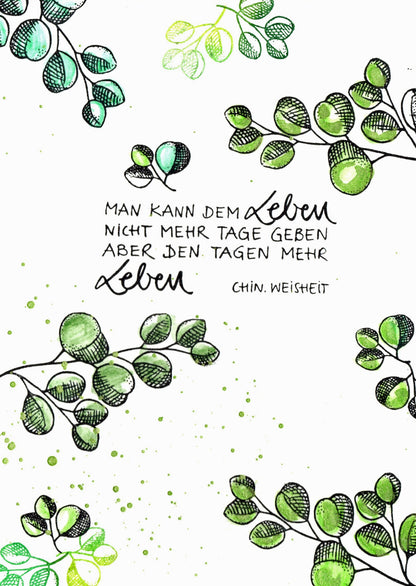 MAN KANN DEM Leben
NICHT MEHR TAGE GEBEN
ABER DEN TAGEN MEHR
Leben CHIN. WEISHEIT